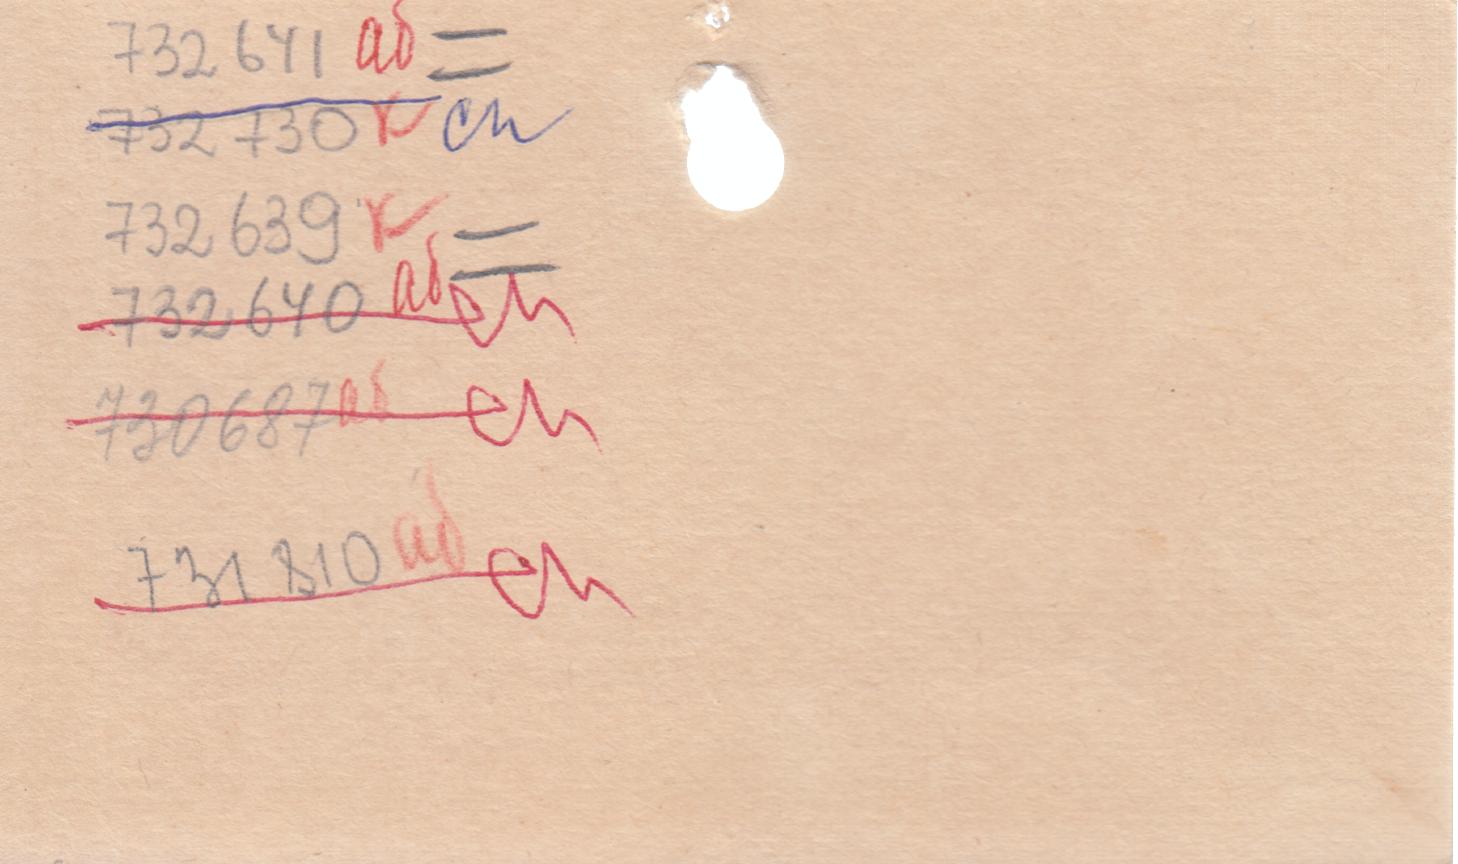 732 641 аб =
732 730 к сп
732 639 к =
732 640 аб сп
730687 аб сп
731 810 аб сп